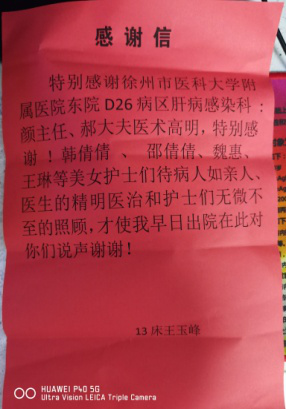 感谢信
特别感谢徐州市医科大学附
属医院东院 D26 病区肝病感染科：
颜主任、郝大夫医术高明，特别感
谢！韩倩倩 、 邵倩倩、魏惠、
王琳等美女护士们待病人如亲人、
医生的精明医治和护士们无微不
至的照顾，才使我早日出院在此对
你们说声谢谢！
13 床王玉峰
HUAWEI P40 5G
Ultra Vision LEICA Triple Camera